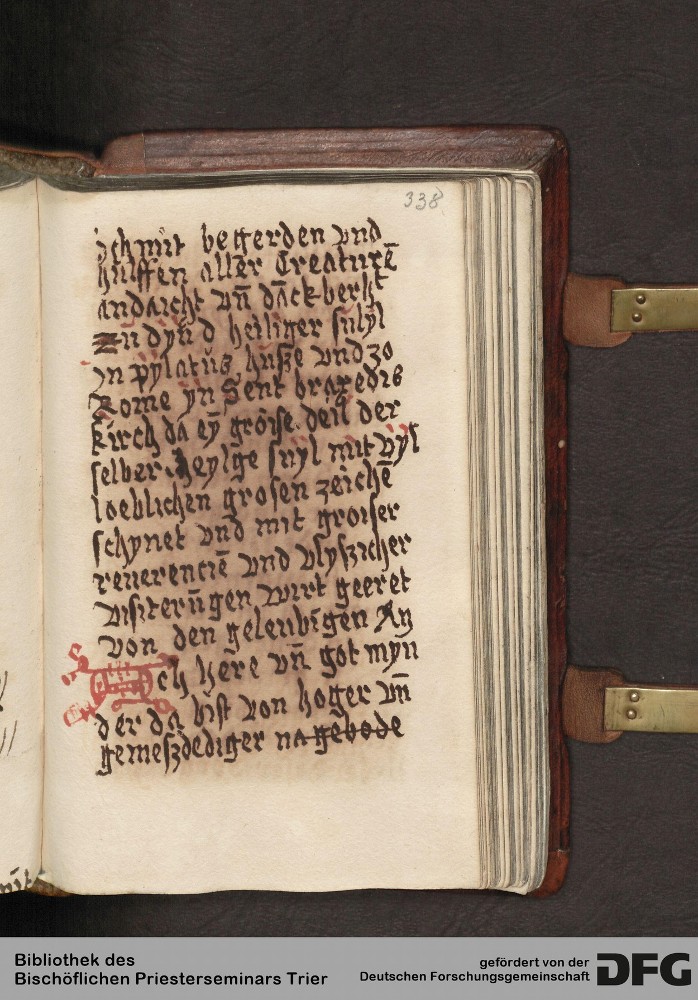 338
ich mit begerden vnd
hulffen aller Creaturē
andaicht vn̄ dāck berkt
zū dyn̄ d heiliger suͤyl
yn pylatus huße vnd zo
Rome yn Sent braxedis
kirch da eȳ groise deil der
selber heylge suyl mit vyl
loeblichen grosen zeichē
schynet vnd mit groiser
reuerenciē vnd vlyszicher
viszterūgen wirt geeret
von den geleubigen Ay
ch here vn̄ got myn
der da bist von hoger vn̄
gemeszdediger na gebode
Bibliothek des
Bischöflichen Priesterseminars Trier
gefördert von der
Deutschen Forschungsgemeinschaft
DFG